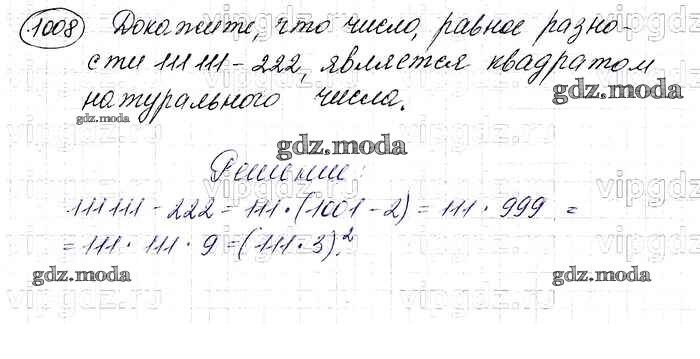 1008 Докажите, что число, равное разно-
сти 111 111 - 222, является квадратом
натурального числа.
gdz.moda
gdz.moda
gdz.moda
Решение:
111 111 - 222 = 111 · (1001 - 2) = 111 · 999 =
= 111 · 111 · 9 = (111 · 3)².
gdz.moda
gdz.moda